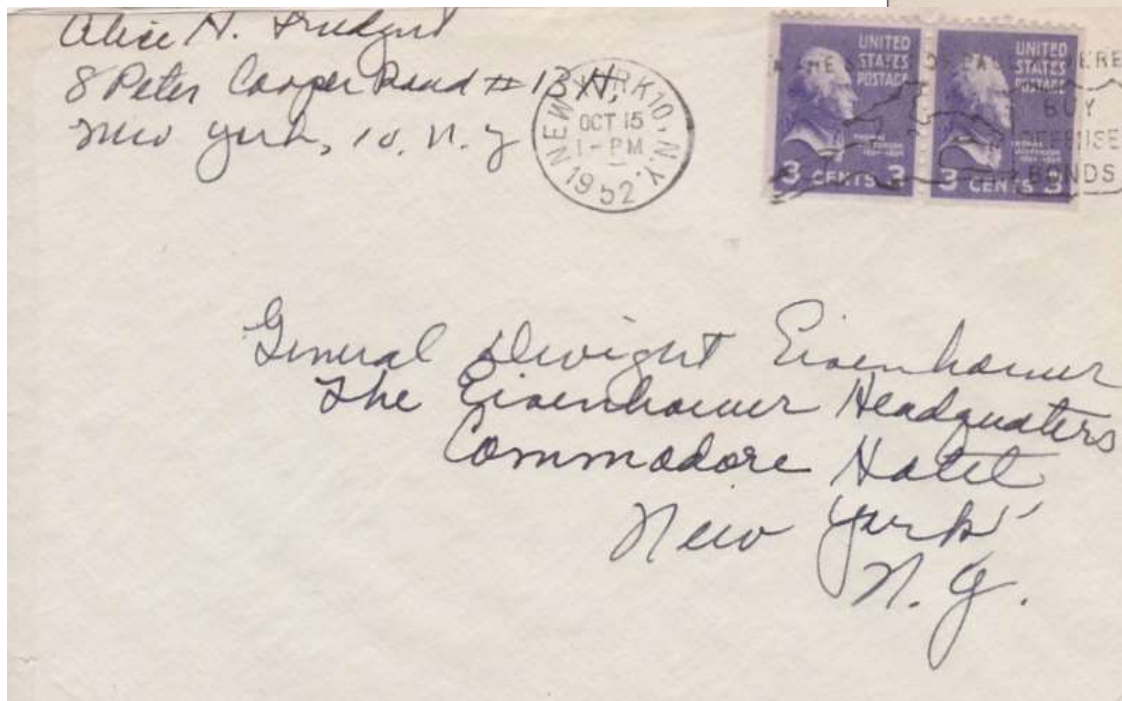 Alice H.
8 Peter Cooper Road # 13H,
New York, 10. N. Y
NEW YORK 10, N.Y.
OCT 15
1-PM
1952
UNITED
STATES
POSTAGE
3 CENTS 3
UNITED
STATES
POSTAGE
3 CENTS 3
BUY
DEFENSE
BONDS
General Dwight Eisenhower
The Eisenhower Headquaters
Commodore Hotel
New York
N. Y.